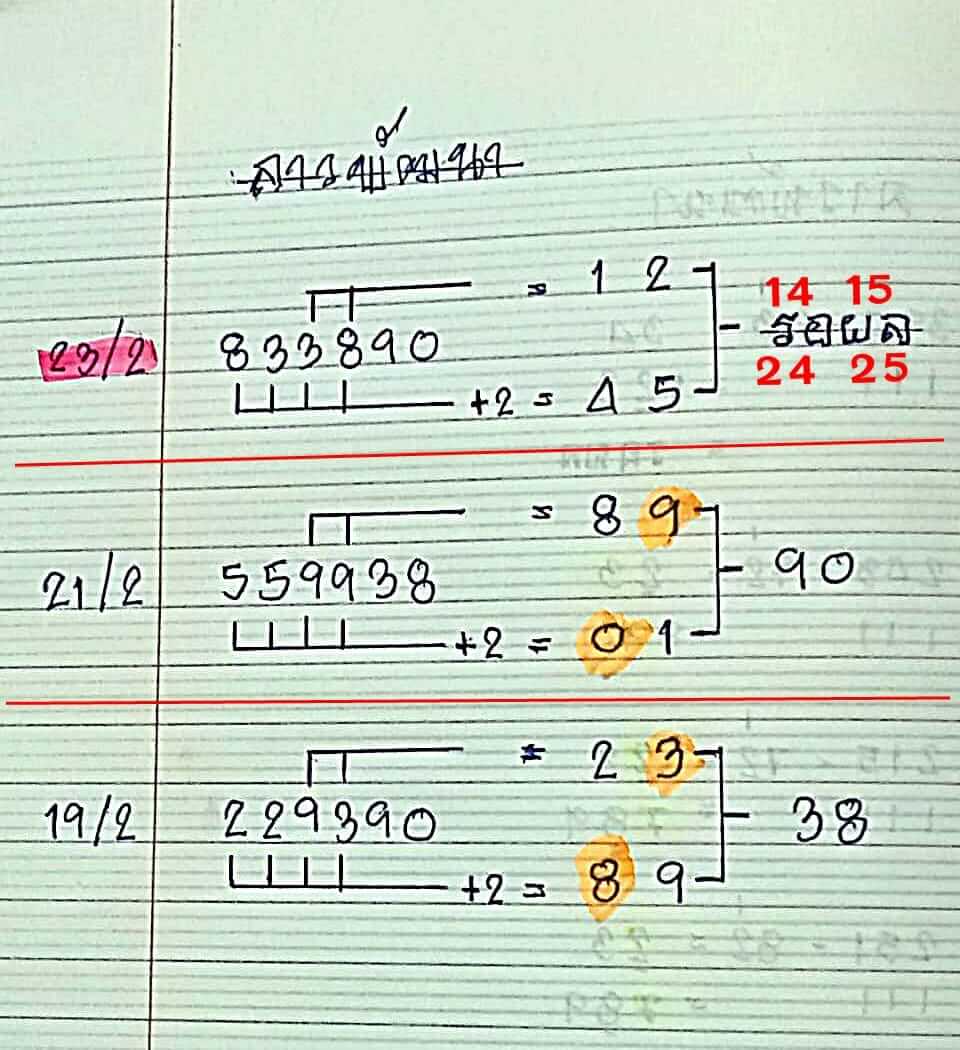 ลาวพัฒนา
= 1 2
14 15
23/2 833890 รอผล
24 25
+2 = 4 5
= 8 9
21/2 559938 90
+2 = 0 1
= 2 3
19/2 229390 38
+2 = 8 9